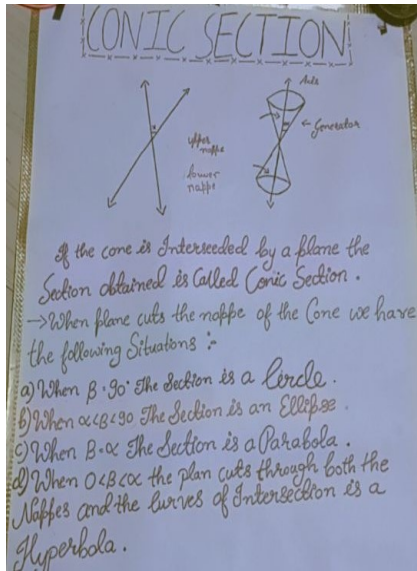 CONIC SECTION
Axis
Generator
upper nappe
lower nappe
If the cone is Interseeded by a plane the
Section obtained is Called Conic Section.
→When plane cuts the nappe of the Cone we have
the following Situations :-
a) When β=90° The Section is a Cercle.
b) When α<β<90 The Section is an Ellipse.
c) When β=α The Section is a Parabola.
d) When 0<β<α the plan cuts through both the
Nappes and the Curves of Intersection is a
Hyperbola.